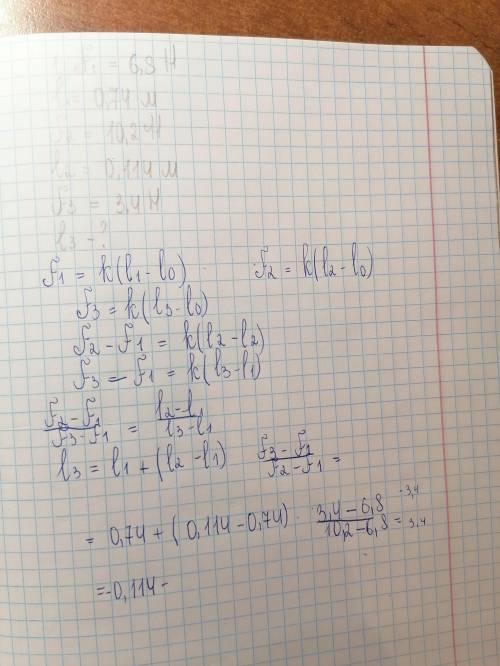 F₁ = 6,8 H
= 0,74 м
F₂ = 10,2 H
l₂ = 0,114 м
F₃ = 3,4 H
l₃ - ?
F₁ = k(l₁ - l₀) F₂ = k(l₂ - l₀)
F₃ = k(l₃ - l₀)
F₂ - F₁ = k(l₂ - l₂)
F₃ - F₁ = k(l₃ - l₁)
F₂ - F₁ / F₃ - F₁ = l₂ - l₁ / l₃ - l₁
l₃ = l₁ + (l₂ - l₁) F₃ - F₁ / F₂ - F₁ =
= 0,74 + (0,114 - 0,74) · 3,4 - 6,8 / 10,2 - 6,8 = -3,4 / 3,4
= -0,114 -